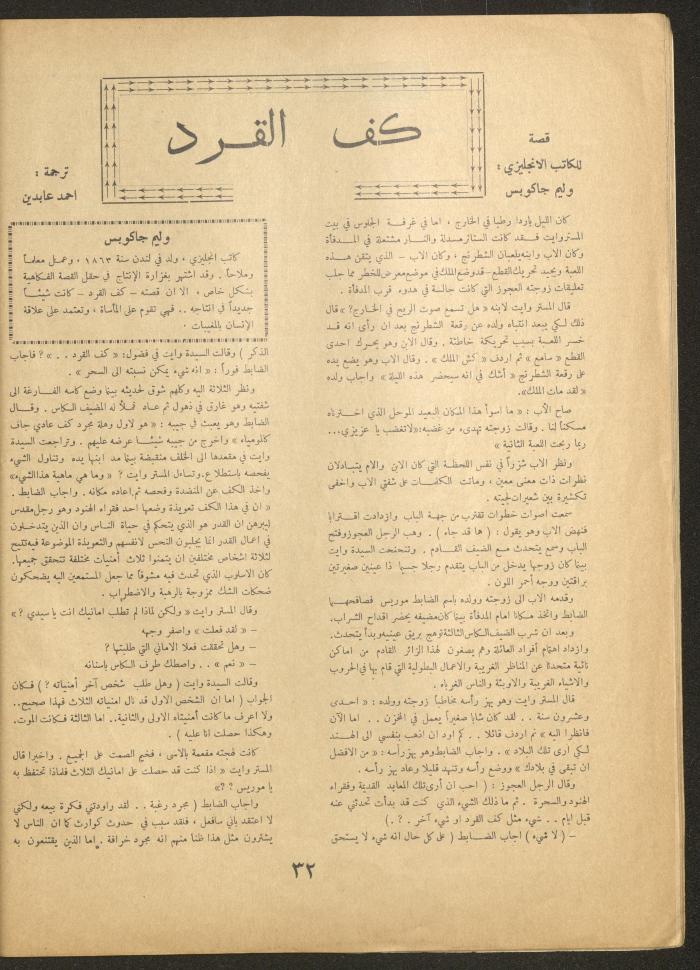 كف القرد
قصة
للكاتب الانجليزي :
وليم جاكوبس
ترجمة :
احمد عابدين
كان الليل باردا رطبا في الخارج ، اما في غرفة الجلوس في بيت
المستر وايت فقد كانت الستائر مسدلة والنار مشتعلة في المدفأة
وكان الاب وابنه يلعبان الشطرنج ، وكان الاب - الذي يتقن هذه
اللعبة ويجيد تحريك القطع - قد وضع الملك في موضع معرض للخطر مما جلب
تعليقات زوجته العجوز التي كانت جالسة في هدوء قرب المدفأة .
قال المستر وايت لابنه « هل تسمع صوت الريح في الخارج؟ » قال
ذلك لكي يبعد انتباه ولده عن رقعة الشطرنج بعد ان رأى انه قد
خسر اللعبة بسبب تحريكة خاطئة . وقال الابن وهو يحرك احدى
القطع « سامع » ثم اردف « كش الملك » . وقال الاب وهو يضع يده
على رقعة الشطرنج « أشك في انه سيحضر هذه الليلة » واجاب ولده
« لقد مات الملك».
صاح الأب : « ما اسوأ هذا المكان البعيد الموحل الذي اخترناه
مسكناً لنا . وقالت زوجته تهدىء من غضبه: «لاتغضب يا عزيزي...
ربما ربحت اللعبة الثانية »
ونظر الاب شزراً في نفس اللحظة التي كان الابن والام يتبادلان
نظرات ذات معنى معين ، وماتت الكلمات على شفتي الاب واخفى
تكشيرة بين شعيرات لحيته .
سمعت اصوات خطوات تقترب من جهة الباب وازدادت اقترابا
فنهض الاب وهو يقول : ( ها قد جاء ) . وهب الرجل العجوز وفتح
الباب وسمع يتحدث مع الضيف القادم . وتنحنحت السيدة وايت
بينما كان زوجها يدخل من الباب يتقدم رجلا جسيما ذا عينين صغيرتين
براقتين ووجه أحمر اللون .
وقدمه الاب الى زوجته وولده باسم الضابط موريس فصافحهما
الضابط واتخذ مكانا امام المدفأة بينما كان مضيفه يحضر اقداح الشراب.
وبعد ان شرب الضيف الكاس الثالثة توهج بريق عينيه وبدأ يتحدث.
وازداد اهتمام أفراد العائلة وهم يصغون لهذا الزائر القادم من اماكن
نائية متحدثا عن المناظر الغريبة والاعمال البطولية التي قام بها في الحروب
والاشياء الغريبة والاوبئة والناس الغرباء .
قال المستر وايت وهو يهز رأسه مخاطباً زوجته وولده : « احدى
وعشرون سنة . . لقد كان شابا صغيراً يعمل في المخزن . . اما الآن
فانظرا اليه » ثم اردف قائلا . . كم اود ان اذهب بنفسي الى الهند
لكي ارى تلك البلاد » . واجاب الضابط وهو يهز رأسه : « من الافضل
ان تبقى في بلادك » ووضع رأسه وتنهد قليلا وعاد يهز رأسه .
وقال الرجل العجوز : ( احب ان أرى تلك المعابد القديمة وفقراء
الهنود والسحرة . ثم ما ذلك الشيء الذي كنت قد بدأت تحدثني عنه
قبل ايام . . شيء مثل كف القرد او شيء آخر . ؟ .)
– ( لا شيء ) اجاب الضابط ( على كل حال انه شيء لا يستحق
وليم جاكوبس
كاتب انجليزي ، ولد في لندن سنة ١٨٦٣ ، وعمل معلماً
وملاحاً . وقد اشتهر بغزارة الإنتاج في حقل القصة الفكاهية
بشكل خاص ، الا ان قصته - كف القرد - كانت شيئاً
جديداً في انتاجه .. فهي تقوم على المأساة ، وتعتمد على علاقة
الإنسان بالمغيبات .
الذكر ) وقالت السيدة وايت في فضول: « كف القرد . . » ؟ فاجاب
الضابط فوراً : « انه شيء يمكن نسبته الى السحر » .
ونظر الثلاثة اليه وكلهم شوق لحديثه بينما وضع كاسه الفارغة الى
شفتيه وهو غارق في ذهول ثم عاد فملأ له المضيف الكاس . وقال
الضابط وهو يعبث في جيبه : « هو لاول وهلة مجرد كف عادي جاف
كالمومياء » واخرج من جيبه شيئاً عرضه عليهم . وتراجعت السيدة
وايت في مقعدها الى الخلف منقبضة بينما مد ابنها يده وتناول الشيء
يفحصه باستطلاع. وتساءل المستر وايت ? « وما هي ماهية هذا الشيء»
واخذ الكف عن المنضدة وفحصه ثم اعاده مكانه . واجاب الضابط .
« ان في هذا الكف تعويذة وضعها احد فقراء الهنود وهو رجل مقدس
ليبرهن ان القدر هو الذي يتحكم في حياة الناس وان الذين يتدخلون
في اعمال القدر انما يجلبون النحس لانفسهم والتعويذة الموضوعة فيه تتيح
لثلاثة اشخاص مختلفين ان يتمنوا ثلاث أمنيات مختلفة تتحقق جميعها.
كان الاسلوب الذي تحدث فيه مشوقاً مما جعل المستمعين اليه يضحكون
ضحكات الشك ممزوجة بالرهبة والاضطراب .
وقال المستر وايت « ولكن لماذا لم تطلب امانيك انت يا سيدي ? »
– « لقد فعلت » واصفر وجهه
– وهل تحققت فعلا الاماني التي طلبتها ?
– « نعم » . . واصطك طرف الكاس باسنانه
وقالت السيدة وايت ( وهل طلب شخص آخر أمنياته ? ) فكان
الجواب ( اما ان الشخص الاول قد نال امنياته الثلاث فهذا صحيح..
ولا اعرف ما كانت أمنيتاه الاولى والثانية.. اما الثالثة فكانت الموت.
وهكذا حصلت انا عليه ) .
كانت لهجته مفعمة بالاسى ، فخيم الصمت على الجميع . واخيرا قال
المستر وايت « اذا كنت قد حصلت على امانيك الثلاث فلماذا تحتفظ به
يا موريس ? ?»
واجاب الضابط ( مجرد رغبة . . لقد راودتني فكرة بيعه ولكني
لا اعتقد باني سافعل ، فلقد سبب في حدوث كوارث كما ان الناس لا
يشترون مثل هذا ظنا منهم انه مجرد خرافة . اما الذين يقتنعون به
٣٢